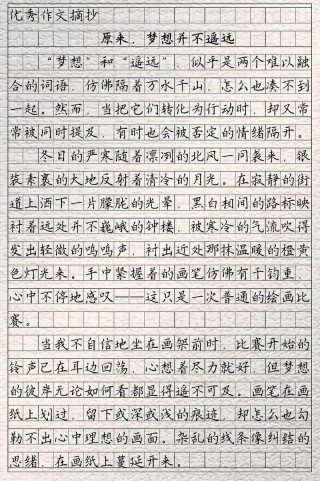 优秀作文摘抄
原来，梦想并不遥远
“梦想”和“遥远”，似乎是两个难以融
合的词语，仿佛隔着万水千山，怎么也凑不到
一起。然而，当把它们转化为行动时，却又常
常被同时提及，有时也会被否定的情绪隔开。
冬日的严寒随着凛冽的北风一同袭来，银
装素裹的大地反射着清冷的月光。在寂静的街
道上洒下一片朦胧的光晕，黑白相间的路标映
衬着远处并不巍峨的钟楼，被寒冷的气流吹得
发出轻微的呜呜声，衬出近处那抹温暖的橙黄
色灯光来。手中紧握着的画笔仿佛有千钧重，
心中不停地感叹——这只是一次普通的绘画比
赛。
当我不自信地坐在画架前时，比赛开始的
铃声已在耳边回荡，心想着尽力就好，但梦想
的彼岸无论如何看都显得遥不可及。画笔在画
纸上划过，留下或深或浅的痕迹，却怎么也勾
勒不出心中理想的画面。杂乱的线条像纠结的
思绪，在画纸上蔓延开来。